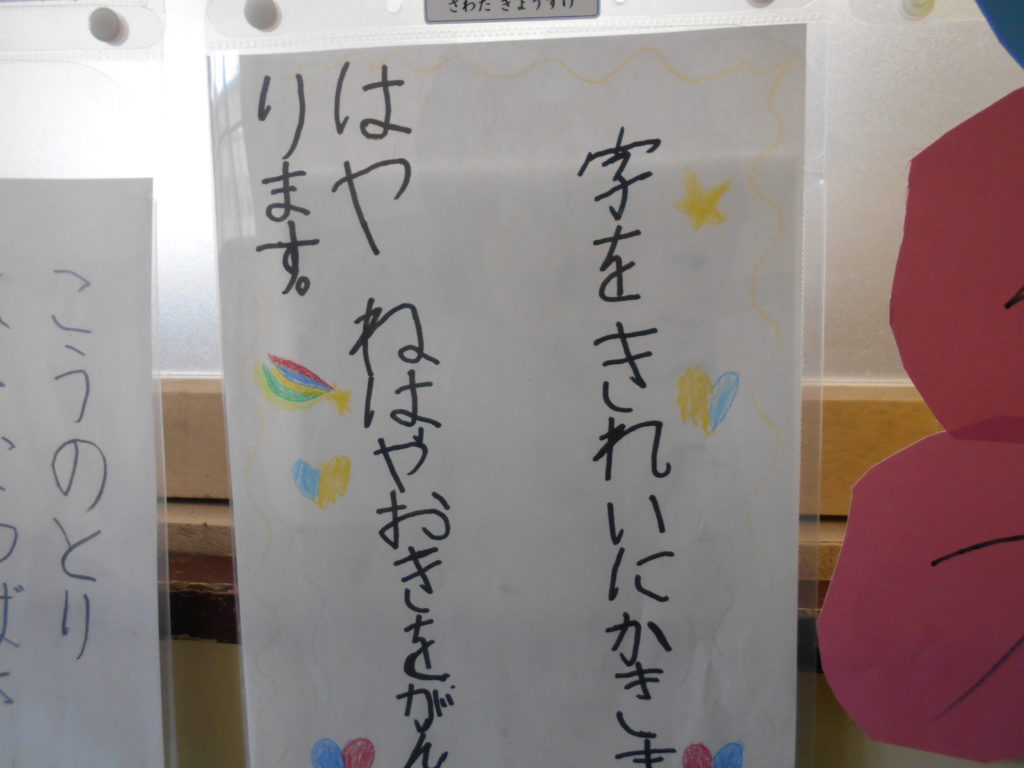 さわだ きょうすけ
字をきれいにかきしま
はや ねはやおきをがん
ります。
こうのとり